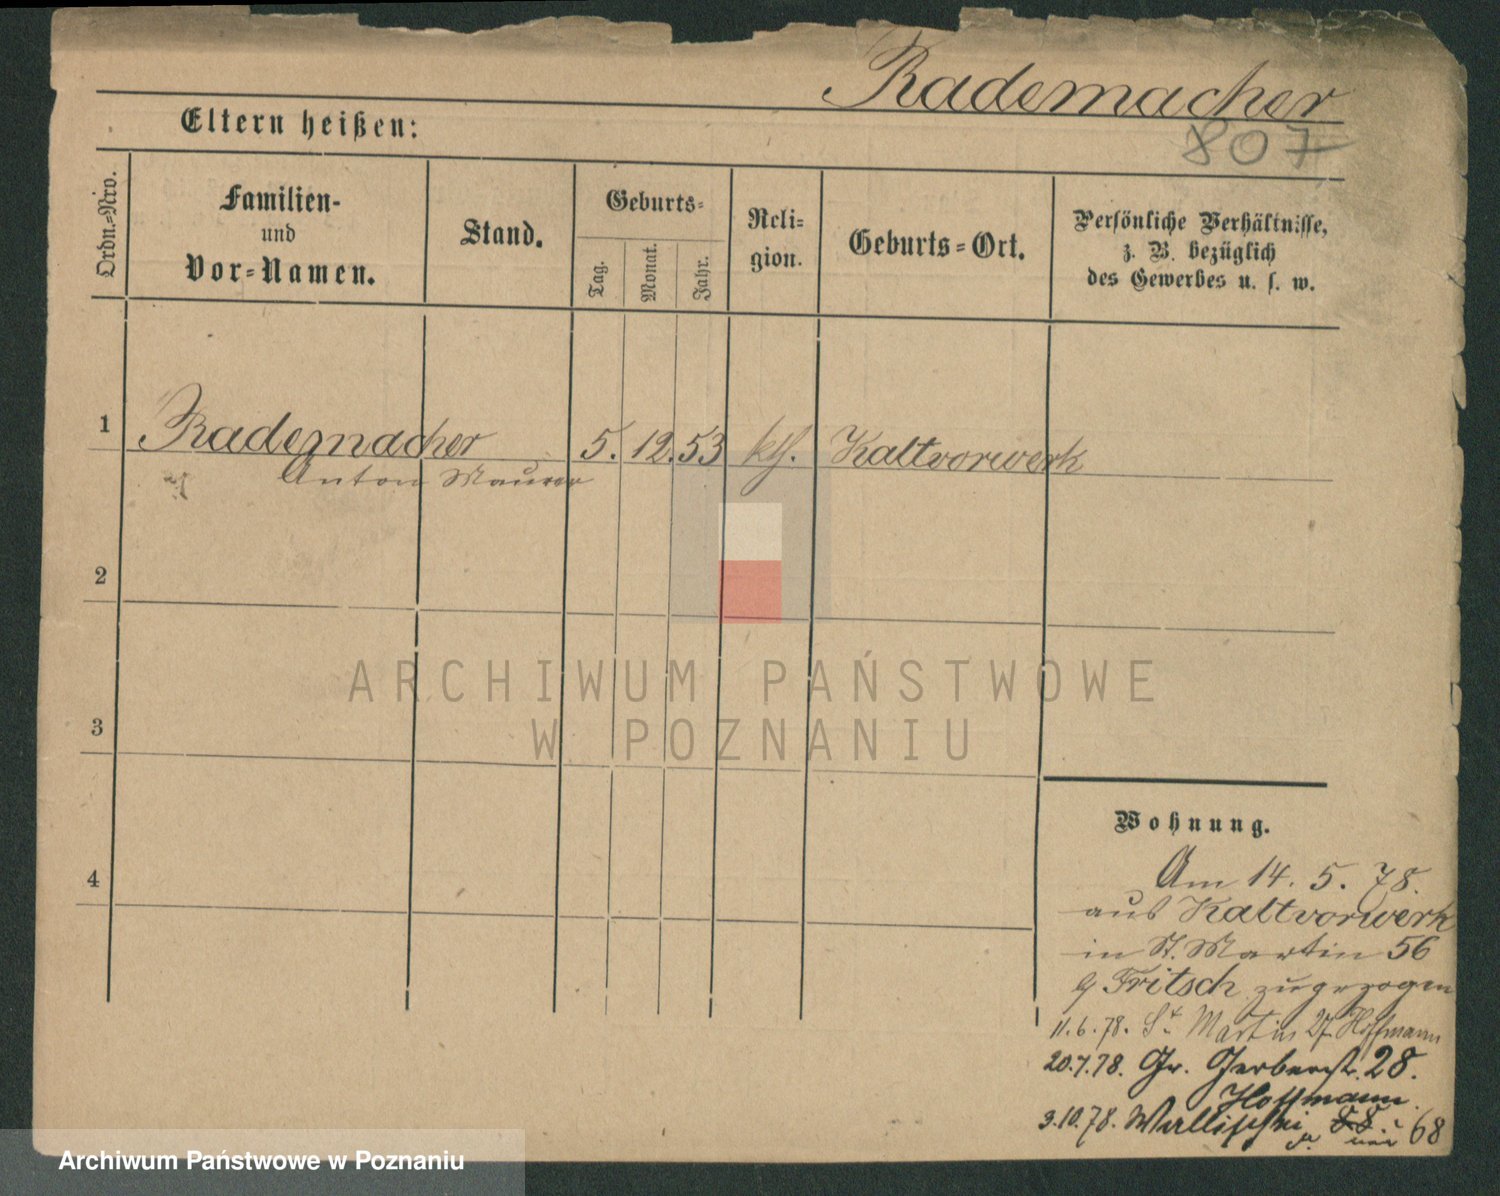 Rademacher
807
Eltern heißen:
Ordn.=Nro.
Familien-
und
Vor=Namen.
Stand.
Geburts=
Tag.
Monat.
Jahr.
Reli=
gion.
Geburts=Ort.
Persönliche Verhältnisse,
z. B. bezüglich
des Gewerbes u. s. w.
1 Rademacher 5. 12. 53 kth. Kaltvorwerk
Anton Maurer
2
3
4
ARCHIWUM PAŃSTWOWE
W POZNANIU
Wohnung.
Am 14. 5. 78.
aus Kaltvorwerk
in St. Martin 56
Fritsch zugezogen
11.6.78. St. Martin 27 Hoffmann
20.7.78. Gr. Gerberstr. 28.
Hoffmann
3.10.78. Wallischei 68
Archiwum Państwowe w Poznaniu